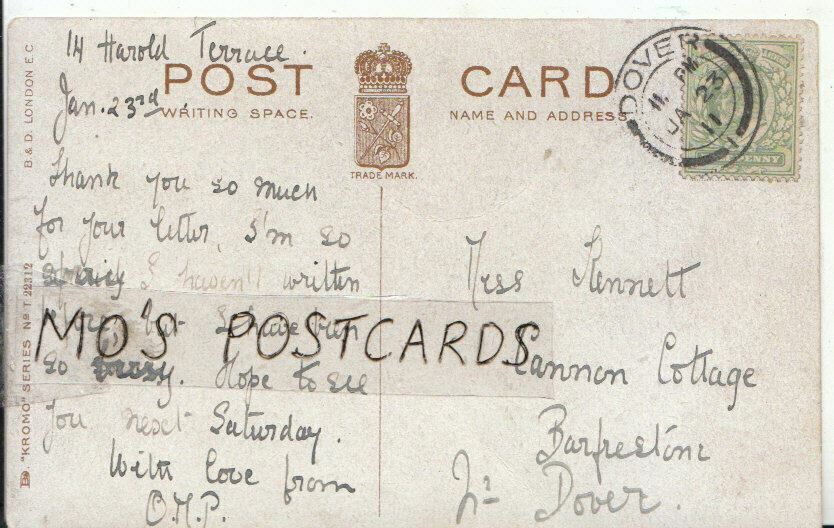 14 Harold Terrace.
Jan. 23rd
POST CARD
WRITING SPACE.
NAME AND ADDRESS
TRADE MARK.
B & D. LONDON E.C
"KROMO" SERIES No T 22312
DOVER
11. PM
JA 23
11
1
PENNY
Thank you so much
for your letter, I'm so
I haven't written
but I have
so busy. Hope to see
you next Saturday.
With love from
O.M.P.
MO'S POSTCARDS
Miss Kennett
Cannon Cottage
Barfrestone
Nr Dover.